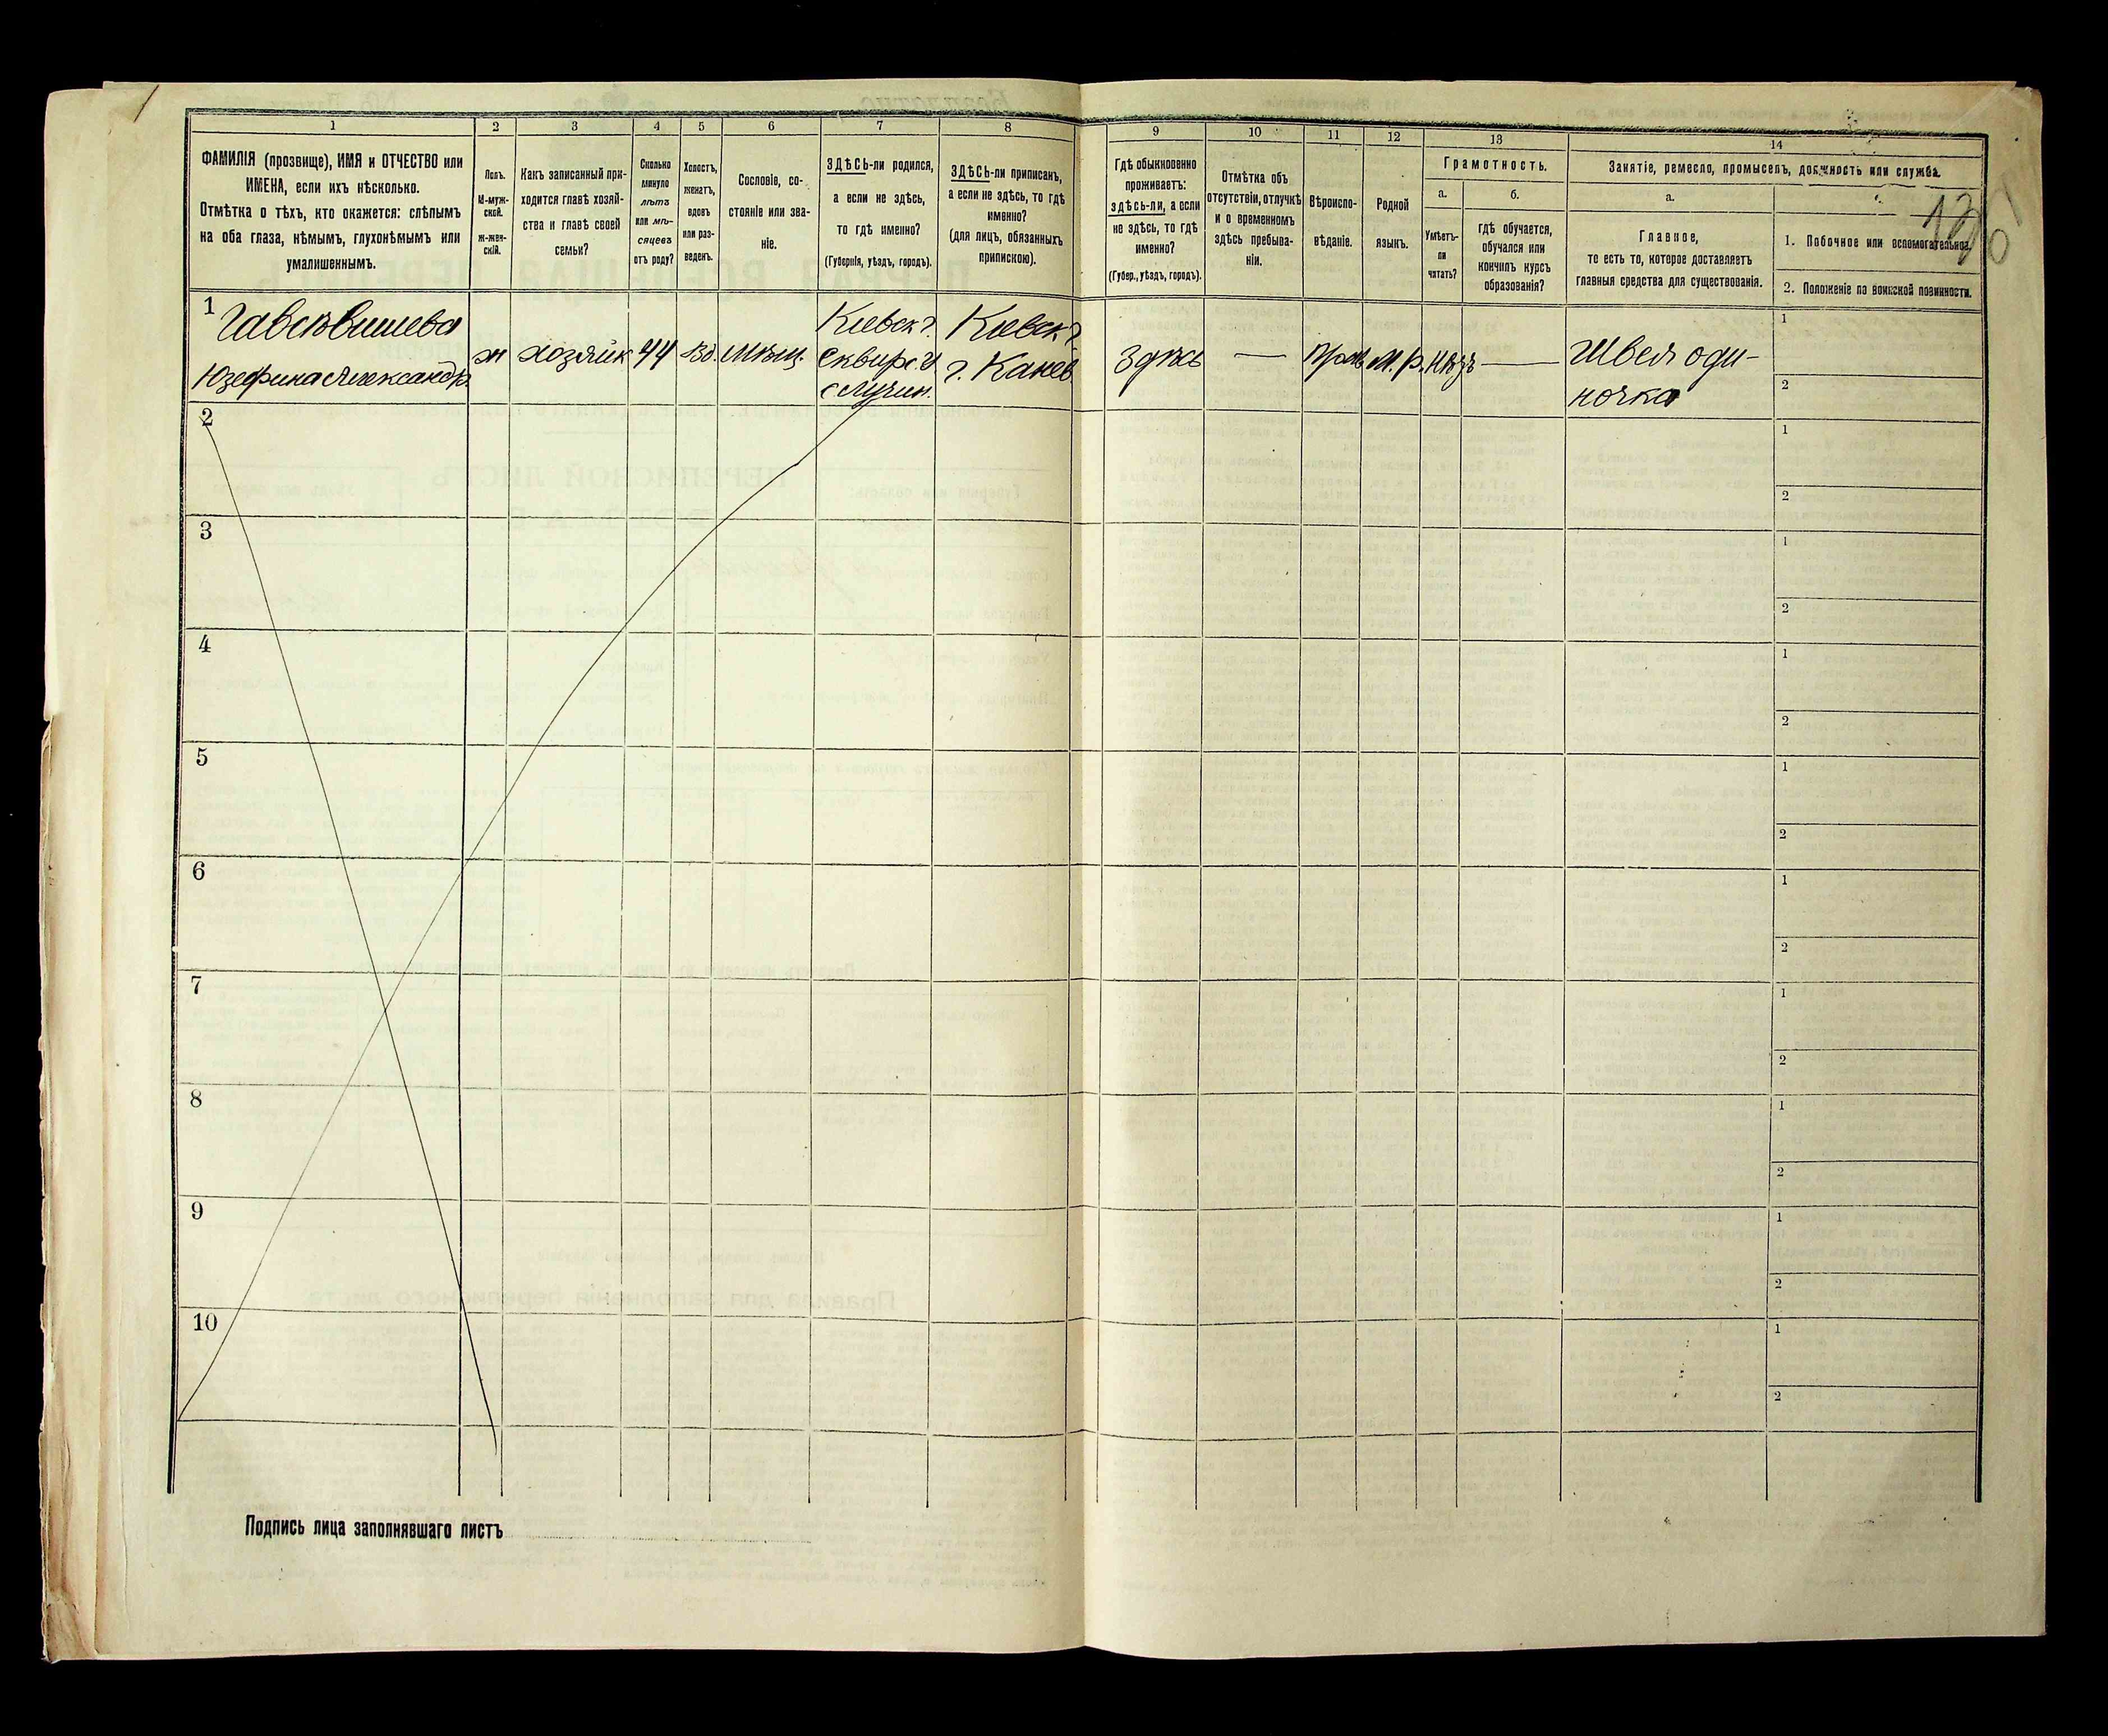 1 2 3 4 5 6 7 8 9 10 11 12 13 14
ФАМИЛІЯ (прозвище), ИМЯ и ОТЧЕСТВО или
ИМЕНА, если ихъ нѣсколько.
Отмѣтка о тѣхъ, кто окажется: слѣпымъ
на оба глаза, нѣмымъ, глухонѣмымъ или
умалишеннымъ.
Полъ.
М-муж-
ской.
ж-жен-
скій.
Какъ записанный при-
ходится главѣ хозяй-
ства и главѣ своей
семьи?
Сколько
минуло
лѣтъ
или мѣ-
сяцевъ
отъ роду?
Холостъ,
женатъ,
вдовъ
или раз-
веденъ.
Сословіе, со-
стояніе или зва-
ніе.
ЗДѢСЬ-ли родился,
а если не здѣсь,
то гдѣ именно?
(Губернія, уѣздъ, городъ).
ЗДѢСЬ-ли приписанъ,
а если не здѣсь, то гдѣ
именно?
(для лицъ, обязанныхъ
припискою).
Гдѣ обыкновенно
проживаетъ:
здѣсь-ли, а если
не здѣсь, то гдѣ
именно?
(Губер., уѣздъ, городъ).
Отмѣтка объ
отсутствіи, отлучкѣ
и о временномъ
здѣсь пребыва-
ніи.
Вѣроиспо-
вѣданіе.
Родной
языкъ.
Грамотность.
а.
Умѣетъ-
ли
читать?
б.
гдѣ обучается,
обучался или
кончилъ курсъ
образованія?
Занятіе, ремесло, промыселъ, должность или служба.
а.
Главное,
то есть то, которое доставляетъ
главныя средства для существованія.
1. Побочное или вспомогательное.
2. Положеніе по воинской повинности.
1
Юзефина Александр.
ж
хозяйк
44
вд.
мѣщ.
Кіевск г.
Сквирс. у
Кіевск г.
г. Канев
Здѣсь
—
м. р.
—
Швея оди-
ночка
1
2
2
1
2
3
1
2
4
1
2
5
1
2
6
1
2
7
1
2
8
1
2
9
1
2
10
1
2
Подпись лица заполнявшаго листъ